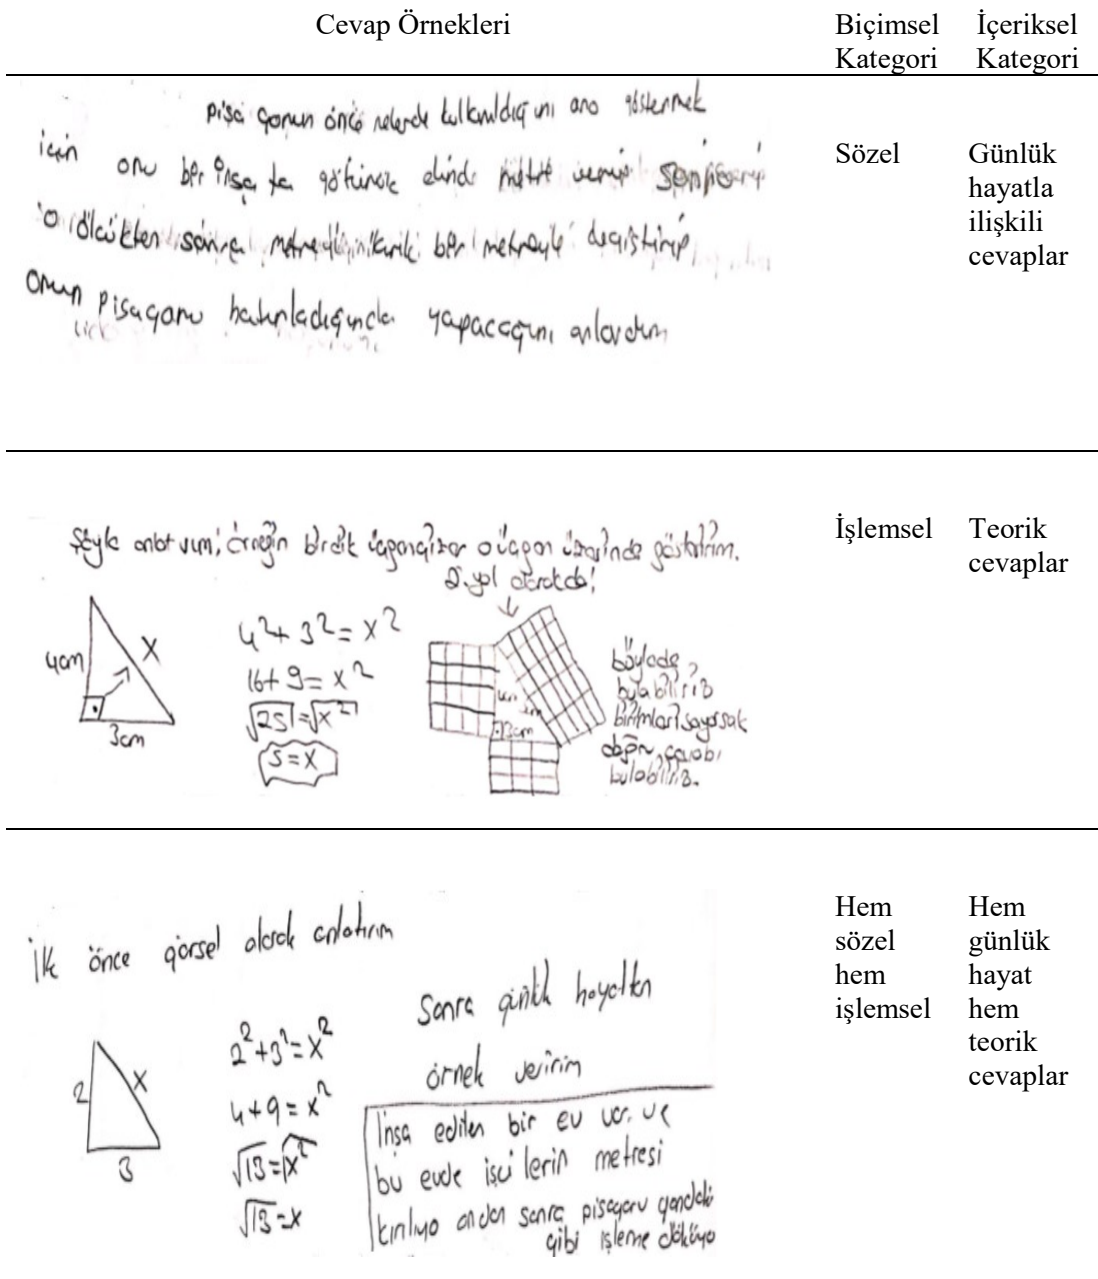 Cevap Örnekleri
Biçimsel Kategori
İçeriksel Kategori
için onu bir inşa ta götürüp elinde metre verip
o ölçükten sonra bir metreyle değiştirip
onun pisagoru hatırladığında yapacağını anlardım
Sözel
Günlük
hayatla
ilişkili
cevaplar
Şöyle örneğin bir dik üçgen üzerinde gösteririm.
2. yol olarak da!
4cm
X
3cm
4²+3²=x²
16+9=x²
√25=√x²
5=x
3cm
böylede
bulabiliriz
birimleri sayarsak
doğru cevabı
bulabiliriz.
İşlemsel
Teorik
cevaplar
İlk önce görsel olarak anlatırım
2
X
3
2²+3²=x²
4+9=x²
√13=√x²
√13=x
Sonra günlük hayattan
örnek veririm
İnşa edilen bir ev var. ve
bu evde işçilerin metresi
kırılıyo ondan sonra pisagoru yandaki
gibi işleme döküyo
Hem
sözel
hem
işlemsel
Hem
günlük
hayat
hem
teorik
cevaplar